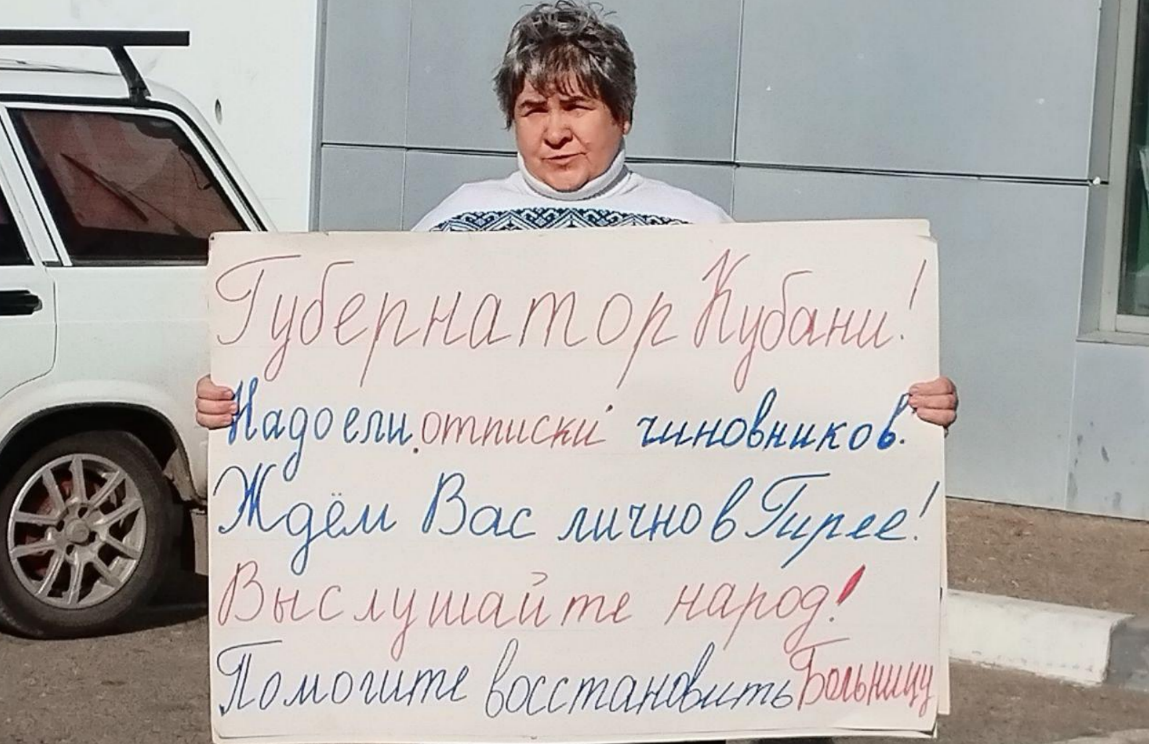 Губернатор Кубани!
Надоели отписки чиновников.
Ждём Вас лично в Гирее!
Выслушайте народ!
Помогите восстановить Больницу